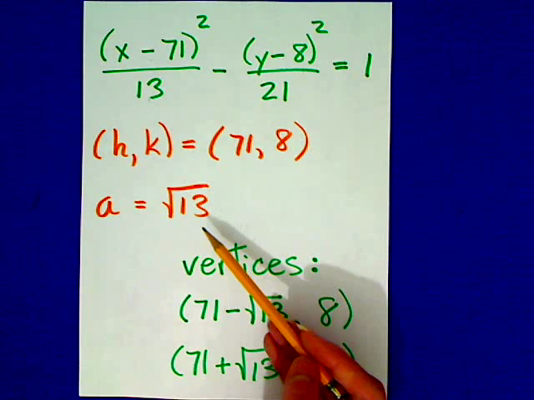 (x - 71)² / 13 - (y - 8)² / 21 = 1
(h, k) = (71, 8)
a = √13
vertices:
(71 - √13, 8)
(71 + √13 )